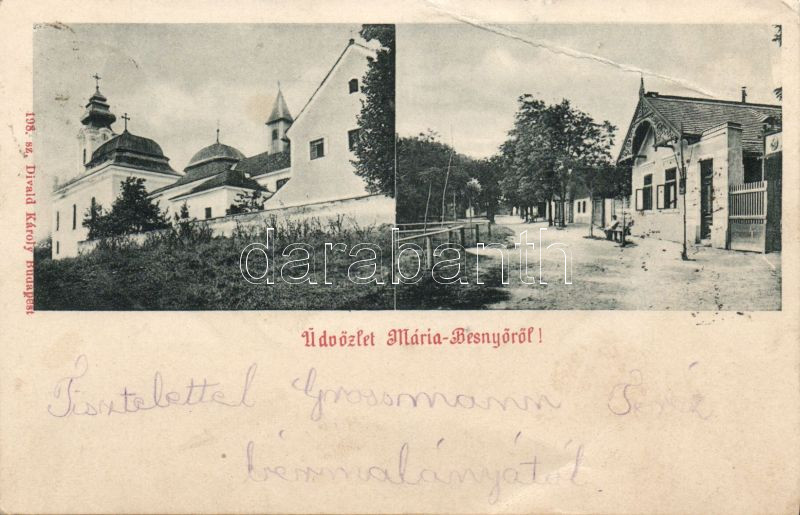 198. sz. Divald Károly Budapest
darabanth
Üdvözlet Mária-Besnyőről!
Tisztelettel Grossmann Teréz
bérmalányától